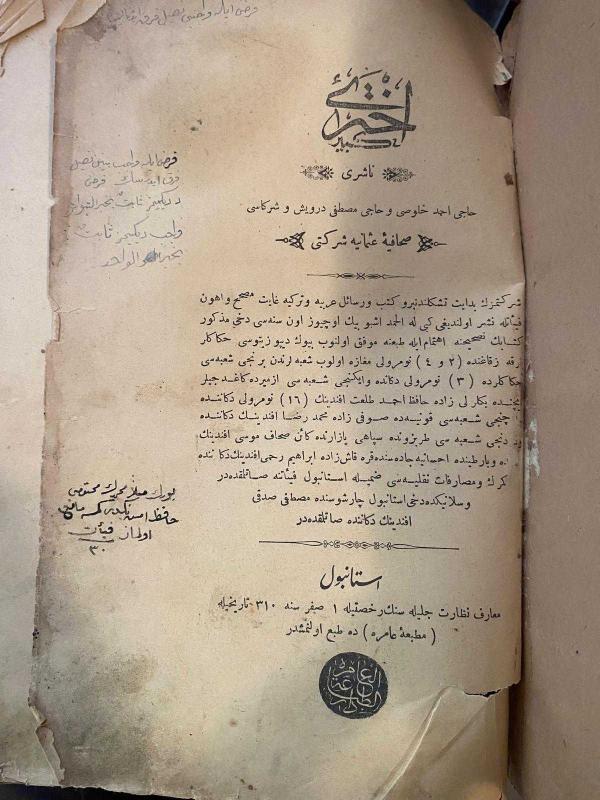 اخترئ
كبير
ناشری
حاجی احمد خلوصی و حاجی مصطفی درویش و شركاسی
صحافیۀ عثمانیه شركتی
شركتمزك بدایت تشكلندنبرو كتب و رسائل عربیه و تركیه غایت مصحح و اهون
فیأتله نشر اولندیغی كبی لله الحمد اشبو بیك اوچیوز اون سنه سی دخی مذكور
كتابك تصحیحنه اهتمام ایله طبعنه موفق اولنوب بیوك دیپوزیتوسی حكاكلر
ارقه زقاغنده (٢ و ٤) نومرولی مغازه اولوب شعبه لرندن برنجی شعبه سی
حكاكلرده (٣) نومرولی دكانده وایكنجی شعبه سی ازمیرده كاغد جیلر
ایچنده بكارلی زاده حافظ احمد طلعت افندینك (١٦) نومرولی دكانده
چنجی شعبه سی قونیه ده صوفی زاده محمد رضا افندینك دكاننده
دنجی شعبه سی طربزونده سپاهی بازارنده كائن صحاف موسی افندینك
ده وبارطینده احسانیه جاده سنده قره قاش زاده ابراهیم رحمی افندینك دكاننده
كرك ومصارفات نقلیه سی ضمیله استانبول فیأتنه صاتلمقده در
وسلانیكده دخی استانبول چارشوسنده مصطفی صدقی
افندینك دكاننده صاتلمقده در
استانبول
معارف نظارت جلیله سنك رخصتیله ١ صفر سنه ٣١٠ تاریخیله
(مطبعۀ عامره) ده طبع اولنمشدر
فرض ایله واجب بینی فصل
فرق ایدرسك فرض
واجب دیكیمز ثابت
بخبر الواحد
حافظ
اولماز فیأت
٣٠